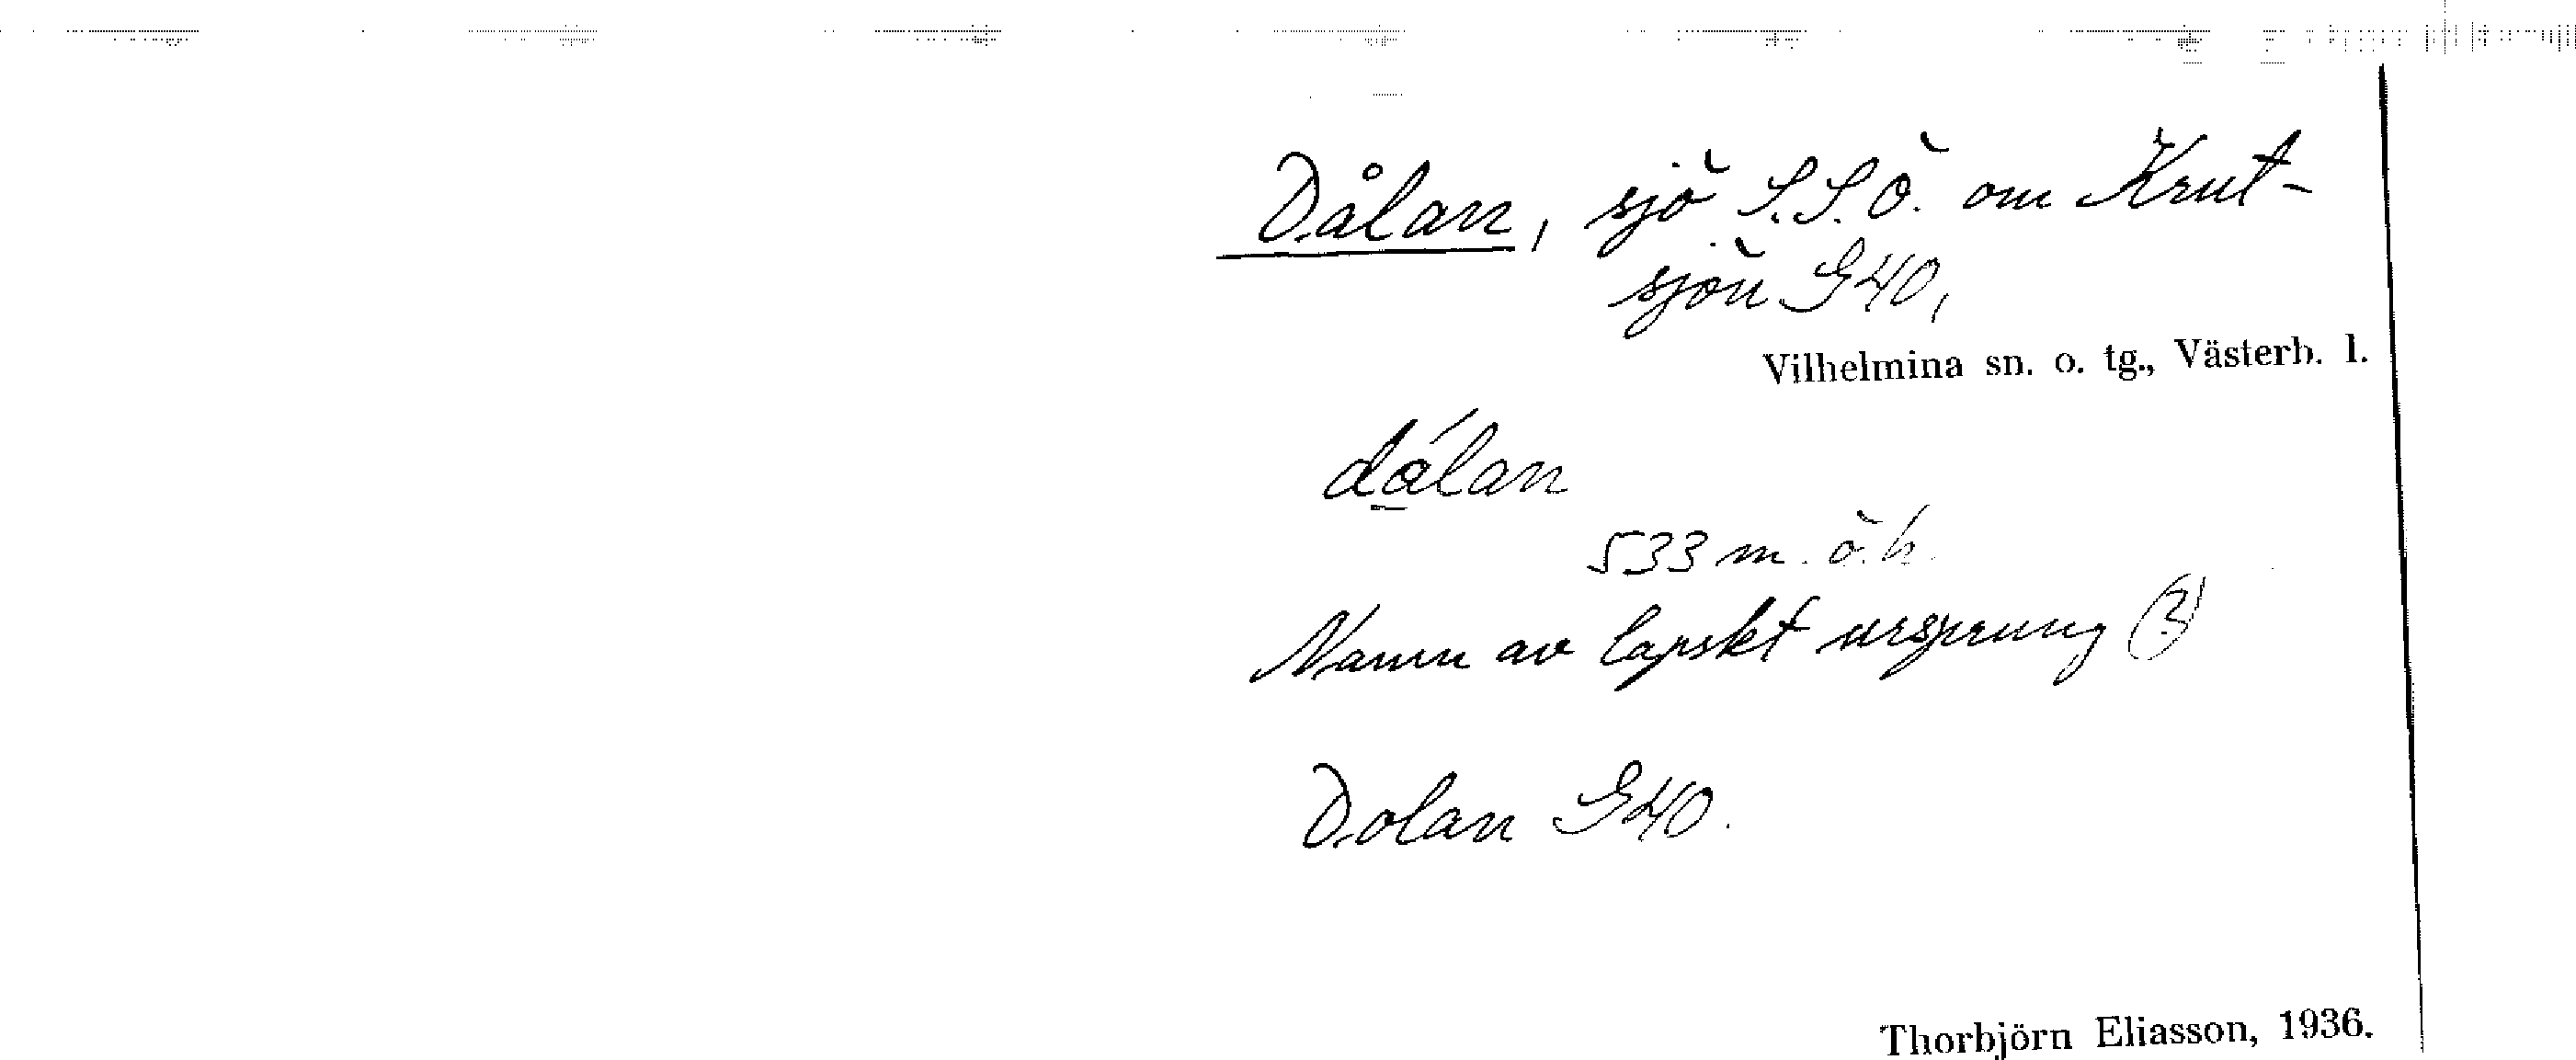 Dålan, sjö S.S.Ö. om Krut-
sjön G40,
Vilhelmina sn. o. tg., Västerb. l.
dålan
533 m. ö. h.
Namn av lapskt ursprung (?)
Dolan G40.
Thorbjörn Eliasson, 1936.